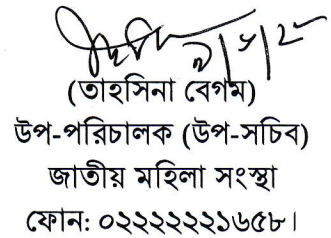 (তাহসিনা বেগম)
উপ-পরিচালক (উপ-সচিব)
জাতীয় মহিলা সংস্থা
ফোন: ০২২২২২২১৬৫৮।